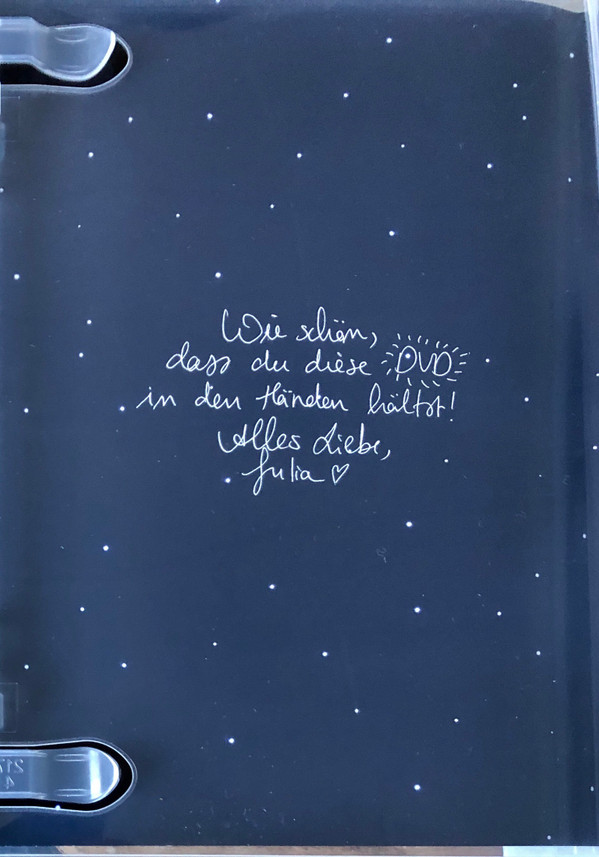 Wie schön,
dass du diese DVD
in den Händen hältst!
Alles Liebe,
Julia ♡